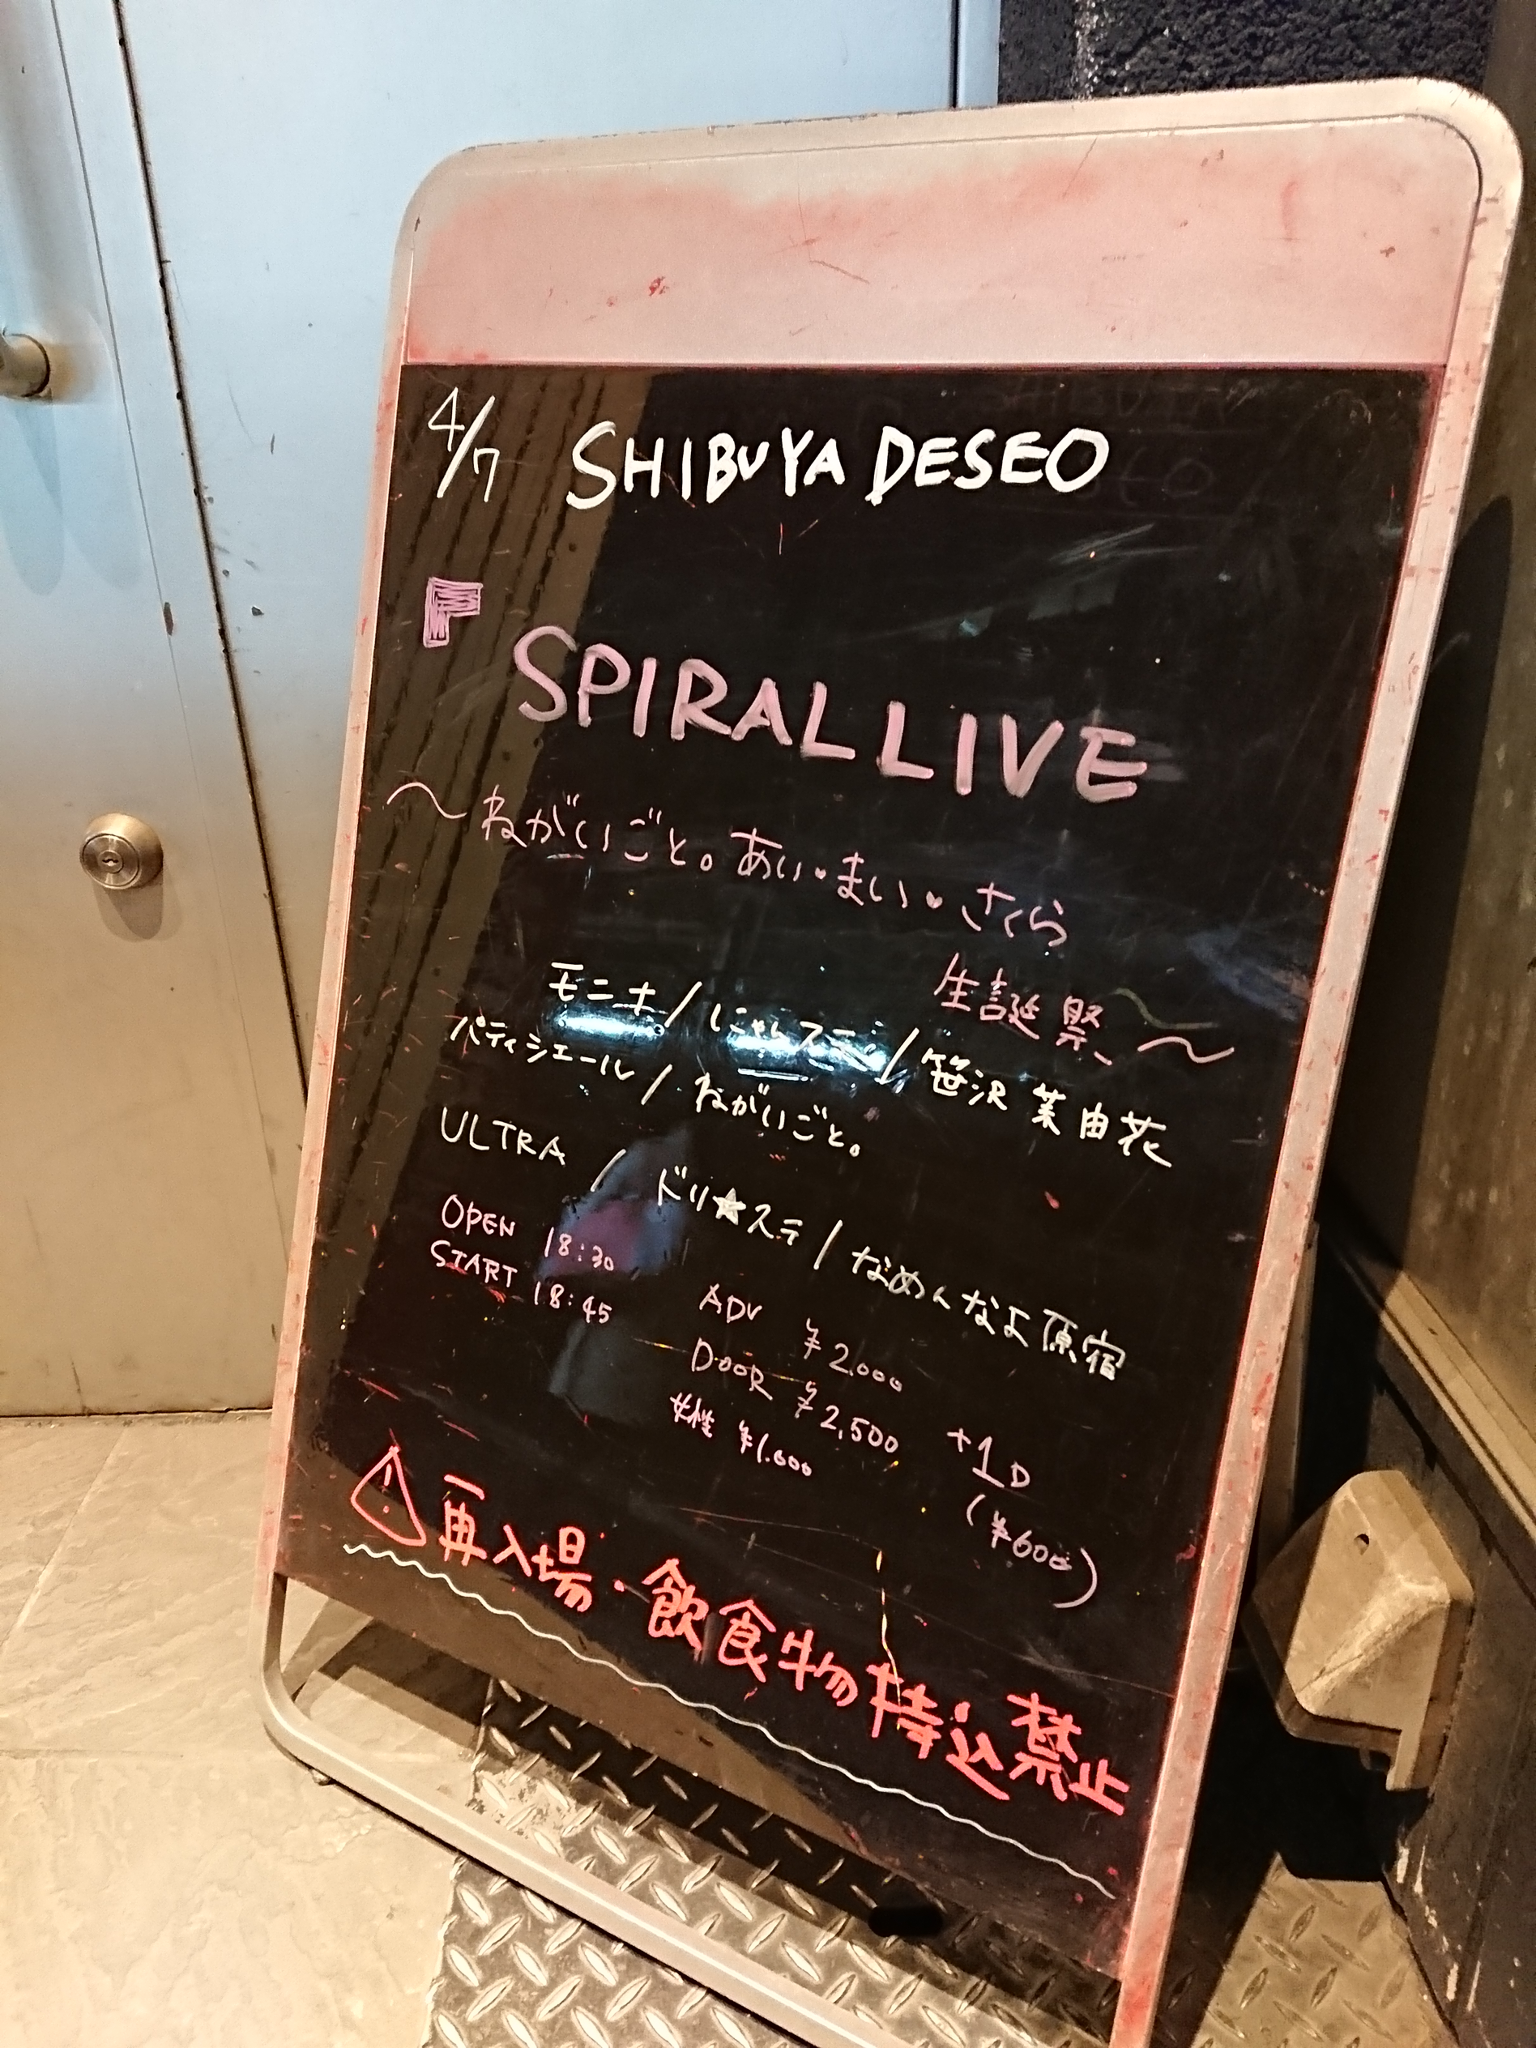 4/7 SHIBUYA DESEO
『SPIRAL LIVE
〜ねがいごと。あい・まい・さくら
生誕祭〜
モニ木/にゃんスティ/笹沢菜由花
パティシエール/ねがいごと。
ULTRA/ドリ★ステ/なめんなよ原宿
OPEN 18:30
START 18:45
ADV ¥2.000
DOOR ¥2,500 +1D
女性 ¥1.000 (¥600)
⚠再入場・飲食物持込禁止